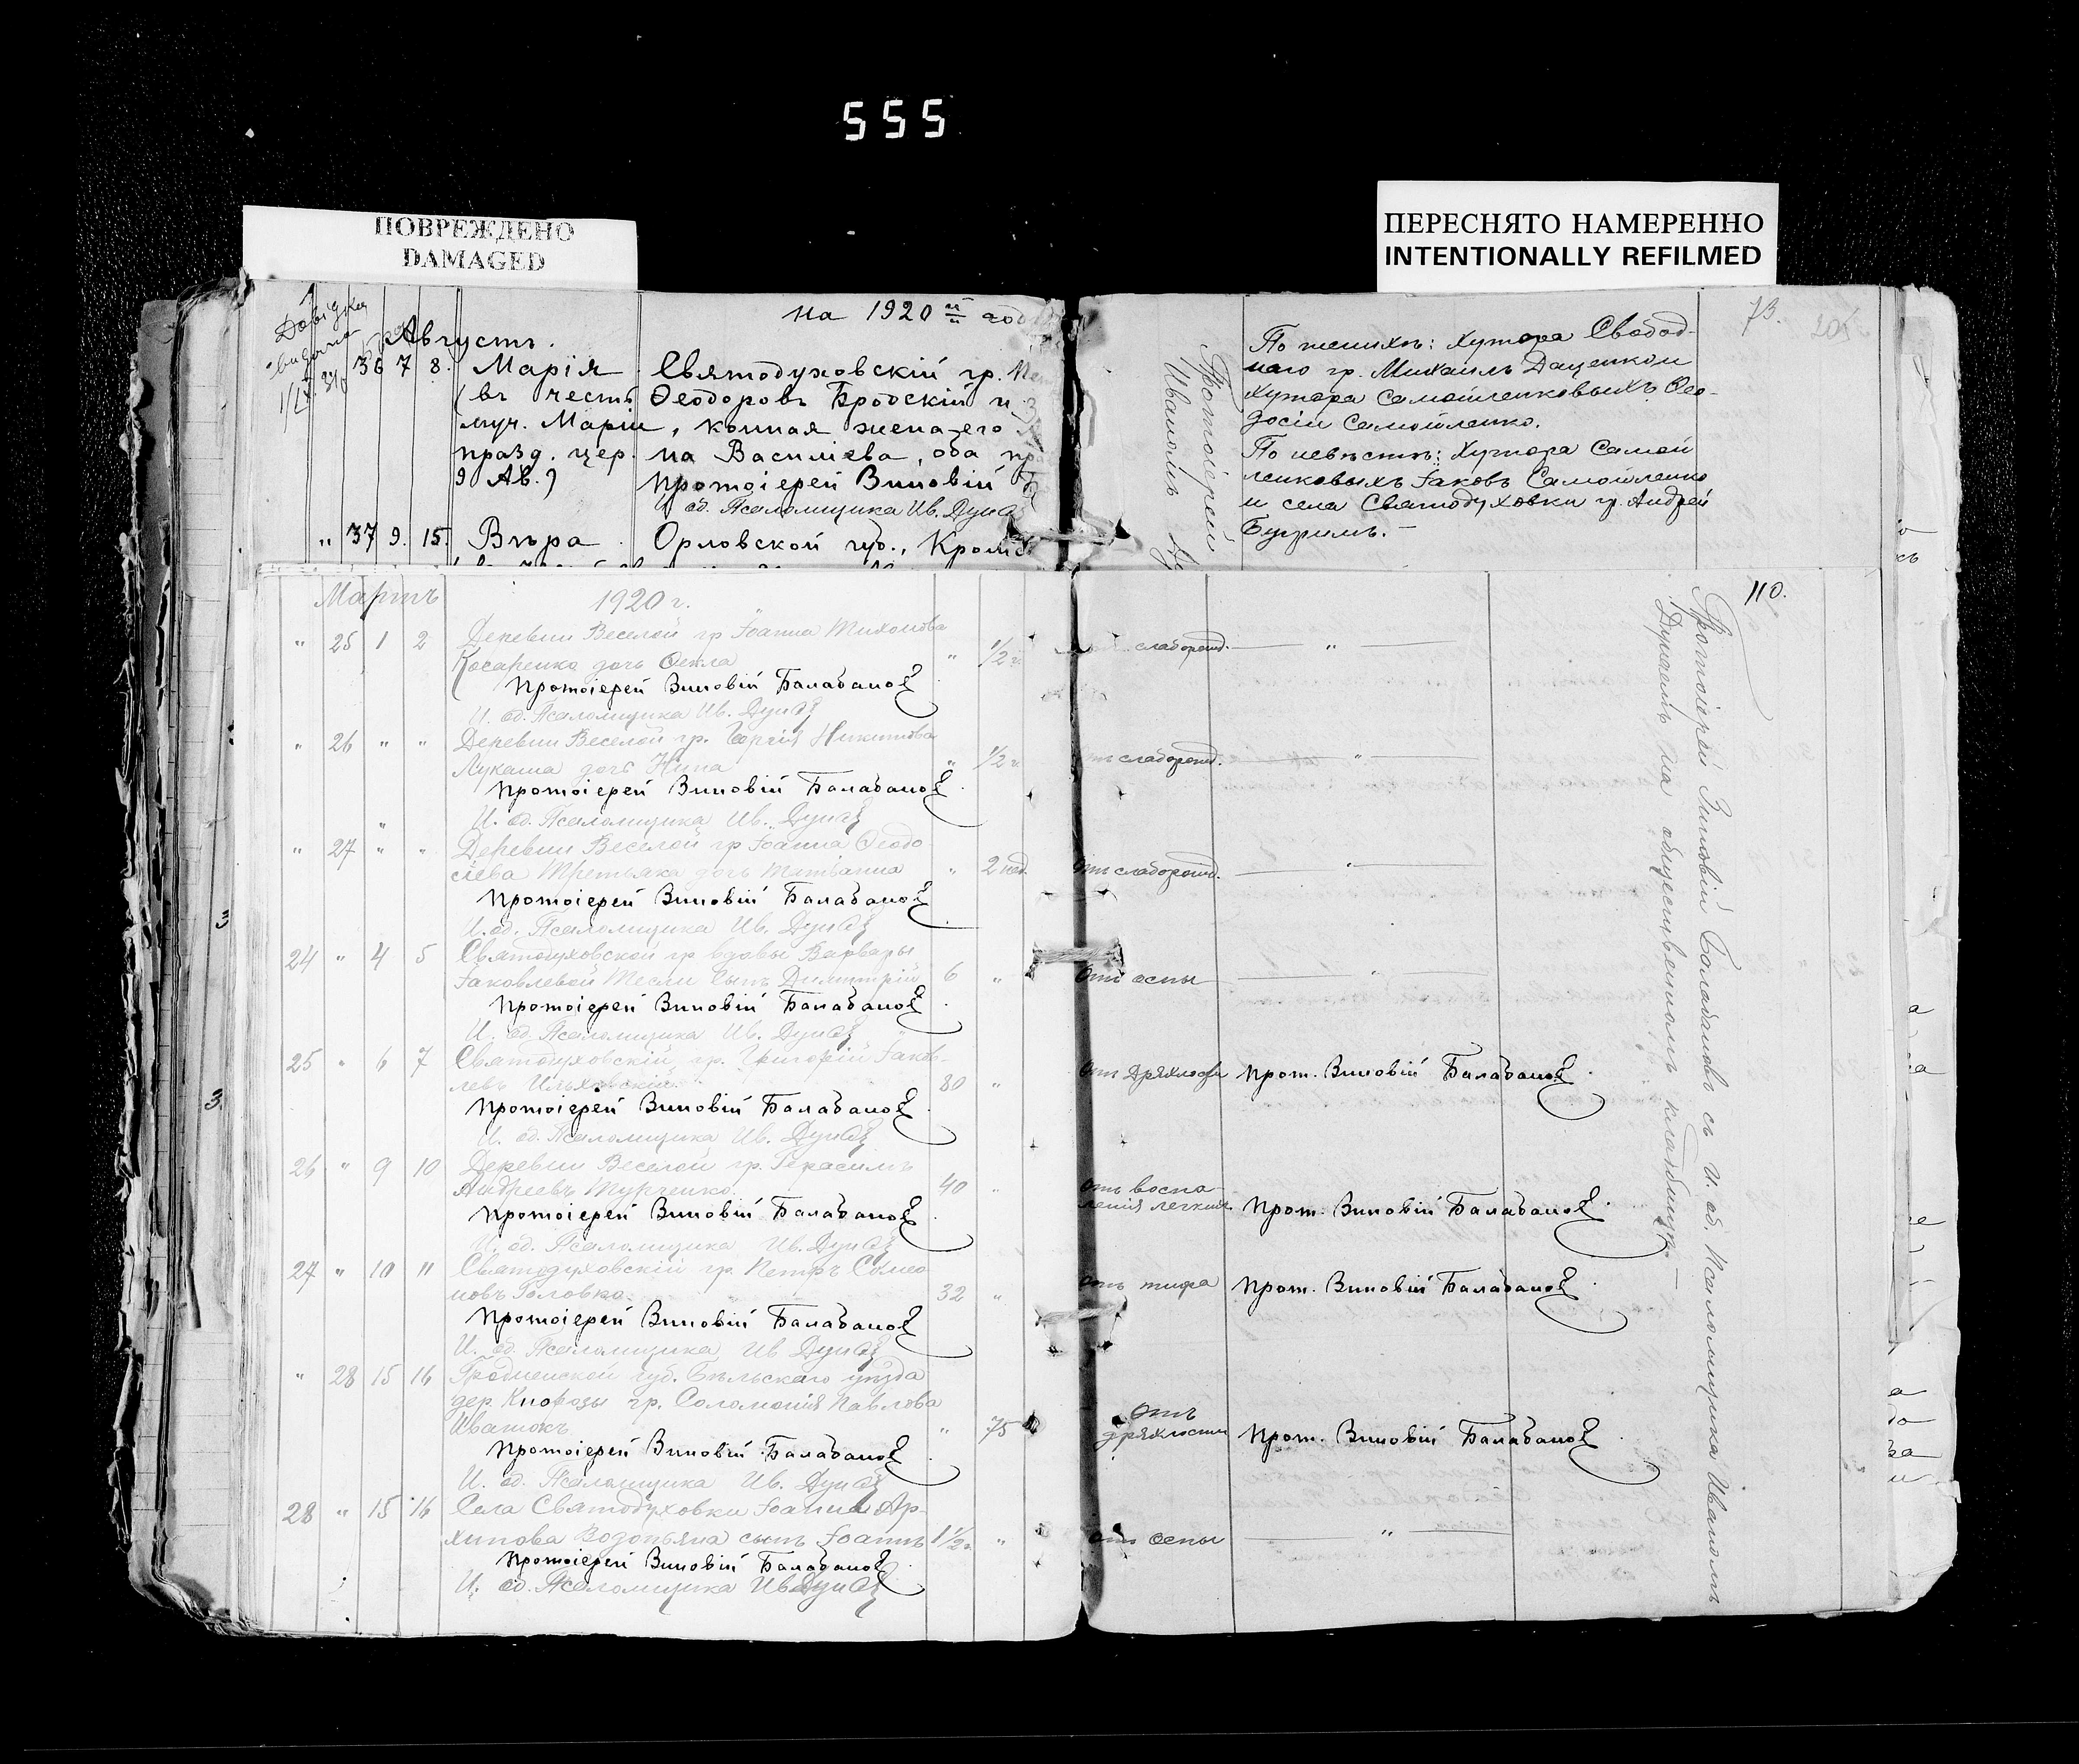 555
ПОВРЕЖДЕНО
DAMAGED
ПЕРЕСНЯТО НАМЕРЕННО
INTENTIONALLY REFILMED
на 1920 й год
Августъ.
36 7 8. Марія Святодуховскій гр.
(въ честь Ѳеодоровъ Бродскій и
муч. Маріи, конная жена его
празд. цер. на Василіева, оба пр
9 Ав.) Протоіерей Зиновій
И. об. Псаломщика Ив. Дунаѣ
" 37 9. 15. Вѣра Орловской губ., Кромс
73.
205
По женихѣ: хутора Свобод-
наго гр. Михаилъ Даценко и
хутора Самойленковыхъ Ѳео-
досій Самойленко.
По невѣстѣ: Хутора Самой
ленковыхъ Іаковъ Самойленко
и села Святодуховки гр. Андрей
Бугримъ.-
Протоіерей
Иваномъ
Мартъ 1920 г.
" 25 1 2 Деревни Веселой гр Іоанна Тихонова
Косаренко дочь Ѳекла " 1/2 ч. слаборожд. "
Протоіерей Зиновій Балабановъ
И. об. Псаломщика Ив. Дунаѣ
" 26 " " Деревни Веселой гр. Георгія Никитова
Лукаша дочь Нина " 1/2 ч. отъ слаборожд. "
Протоіерей Зиновій Балабановъ
И. об. Псаломщика Ив. Дунаѣ
" 27 " " Деревни Веселой гр Іоанна Ѳеодо
сіева Третьяка дочь Татіанна " 2 нед. Отъ слаборожд. "
Протоіерей Зиновій Балабановъ
И. об. Псаломщика Ив. Дунаѣ
24 " 4 5 Святодуховской гр вдовы Варвары
Іаковлевой Тесли сынъ Димитрій 6 " Отъ оспы "
Протоіерей Зиновій Балабановъ
И. об. Псаломщика Ив. Дунаѣ
25 " 6 7 Святодуховскій гр. Григорій Іаков-
левъ Ильховскій 80 " Отъ дряхлости Прот. Зиновій Балабановъ
Протоіерей Зиновій Балабановъ
И. об. Псаломщика Ив. Дунаѣ
26 " 9 10 Деревни Веселой гр. Герасимъ
Андреевъ Турченко 40 " отъ воспа-
ленія легкихъ Прот. Зиновій Балабановъ
Протоіерей Зиновій Балабановъ
И. об. Псаломщика Ив. Дунаѣ
27 " 10 11 Святодуховскій гр. Петръ Симео
новъ Головко 32 " отъ тифа Прот. Зиновій Балабановъ
Протоіерей Зиновій Балабановъ
И. об. Псаломщика Ив Дунаѣ
" 28 15 16 Гродненской губ. Бѣльскаго уѣзда
дер. Кнорозы гр. Соломонія Павлова
Иватюкъ " 75 отъ
дряхлости Прот. Зиновій Балабановъ
Протоіерей Зиновій Балабановъ
И. об. Псаломщика Ив. Дунаѣ
28 " 15 16 Села Святодуховки Іоанна Ар-
хипова Водопьяна сынъ Іоаннъ 1 1/2 " отъ оспы "
Протоіерей Зиновій Балабановъ
И. об. Псаломщика Ив Дунаѣ
110.
Протоіерей Зиновій Балабановъ съ И. об. Псаломщика Иваномъ
Дунаемъ на общественномъ кладбищѣ.-